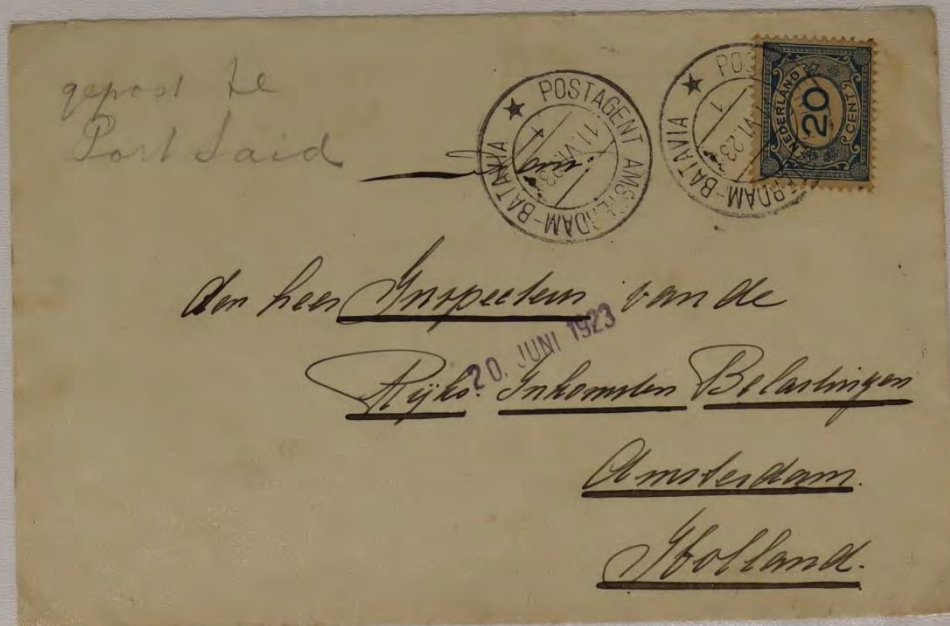 gepost te
Port Said
POSTAGENT AMSTERDAM-BATAVIA
11.VI.23
1
PO ERDAM-BATAVIA
VI.23
1
NEDERLAND
20
CENT
den heer Inspecteur van de
20. JUNI 1923
Rijks. Inkomsten Belastingen
Amsterdam.
Holland.